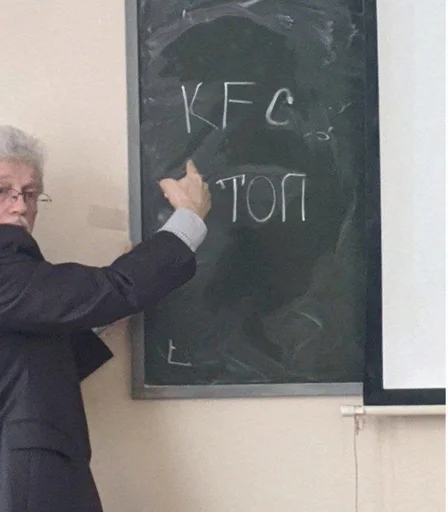 KFC
ТОП